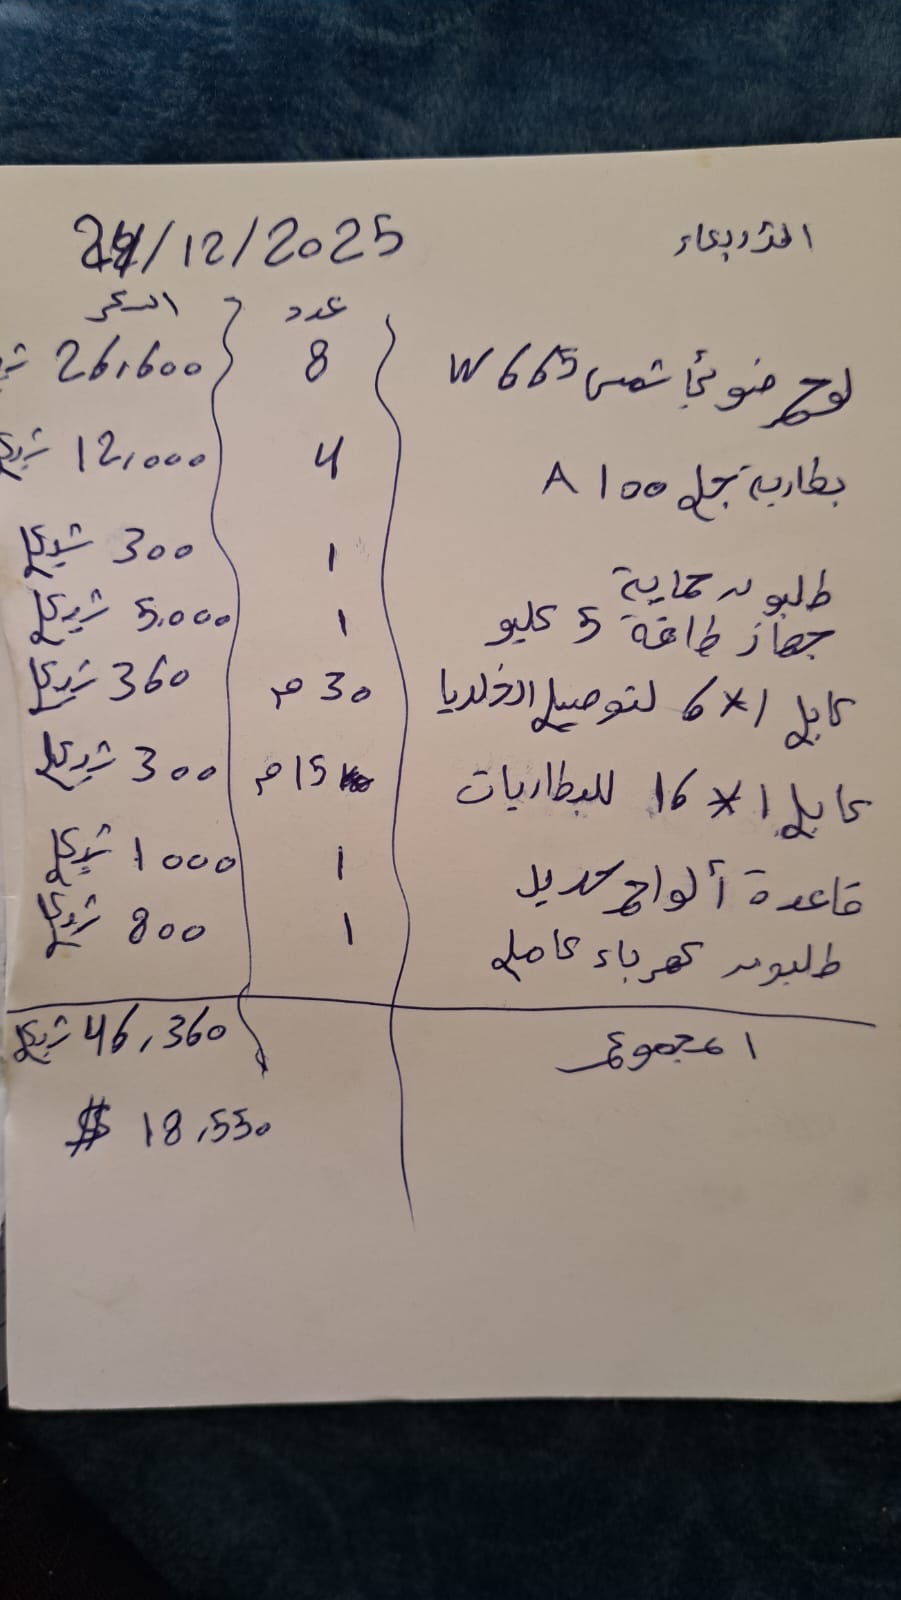 الأربعاء 24/12/2025
عدد السعر
لوح ضوئي شمسي 665 W 8 26,600
بطارية جل 100 A 4 12,000 شيكل
طلبون حماية 1 300 شيكل
جهاز طاقة 5 كيلو 1 5,000 شيكل
كابل 1*6 لتوصيل الخلايا 30 م 360 شيكل
كابل 1*16 للبطاريات 15 م 300 شيكل
قاعدة ألواح حديد 1 1000 شيكل
طلبون كهرباء كامل 1 800 شيكل
المجموع 46,360 شيكل
18,550 $